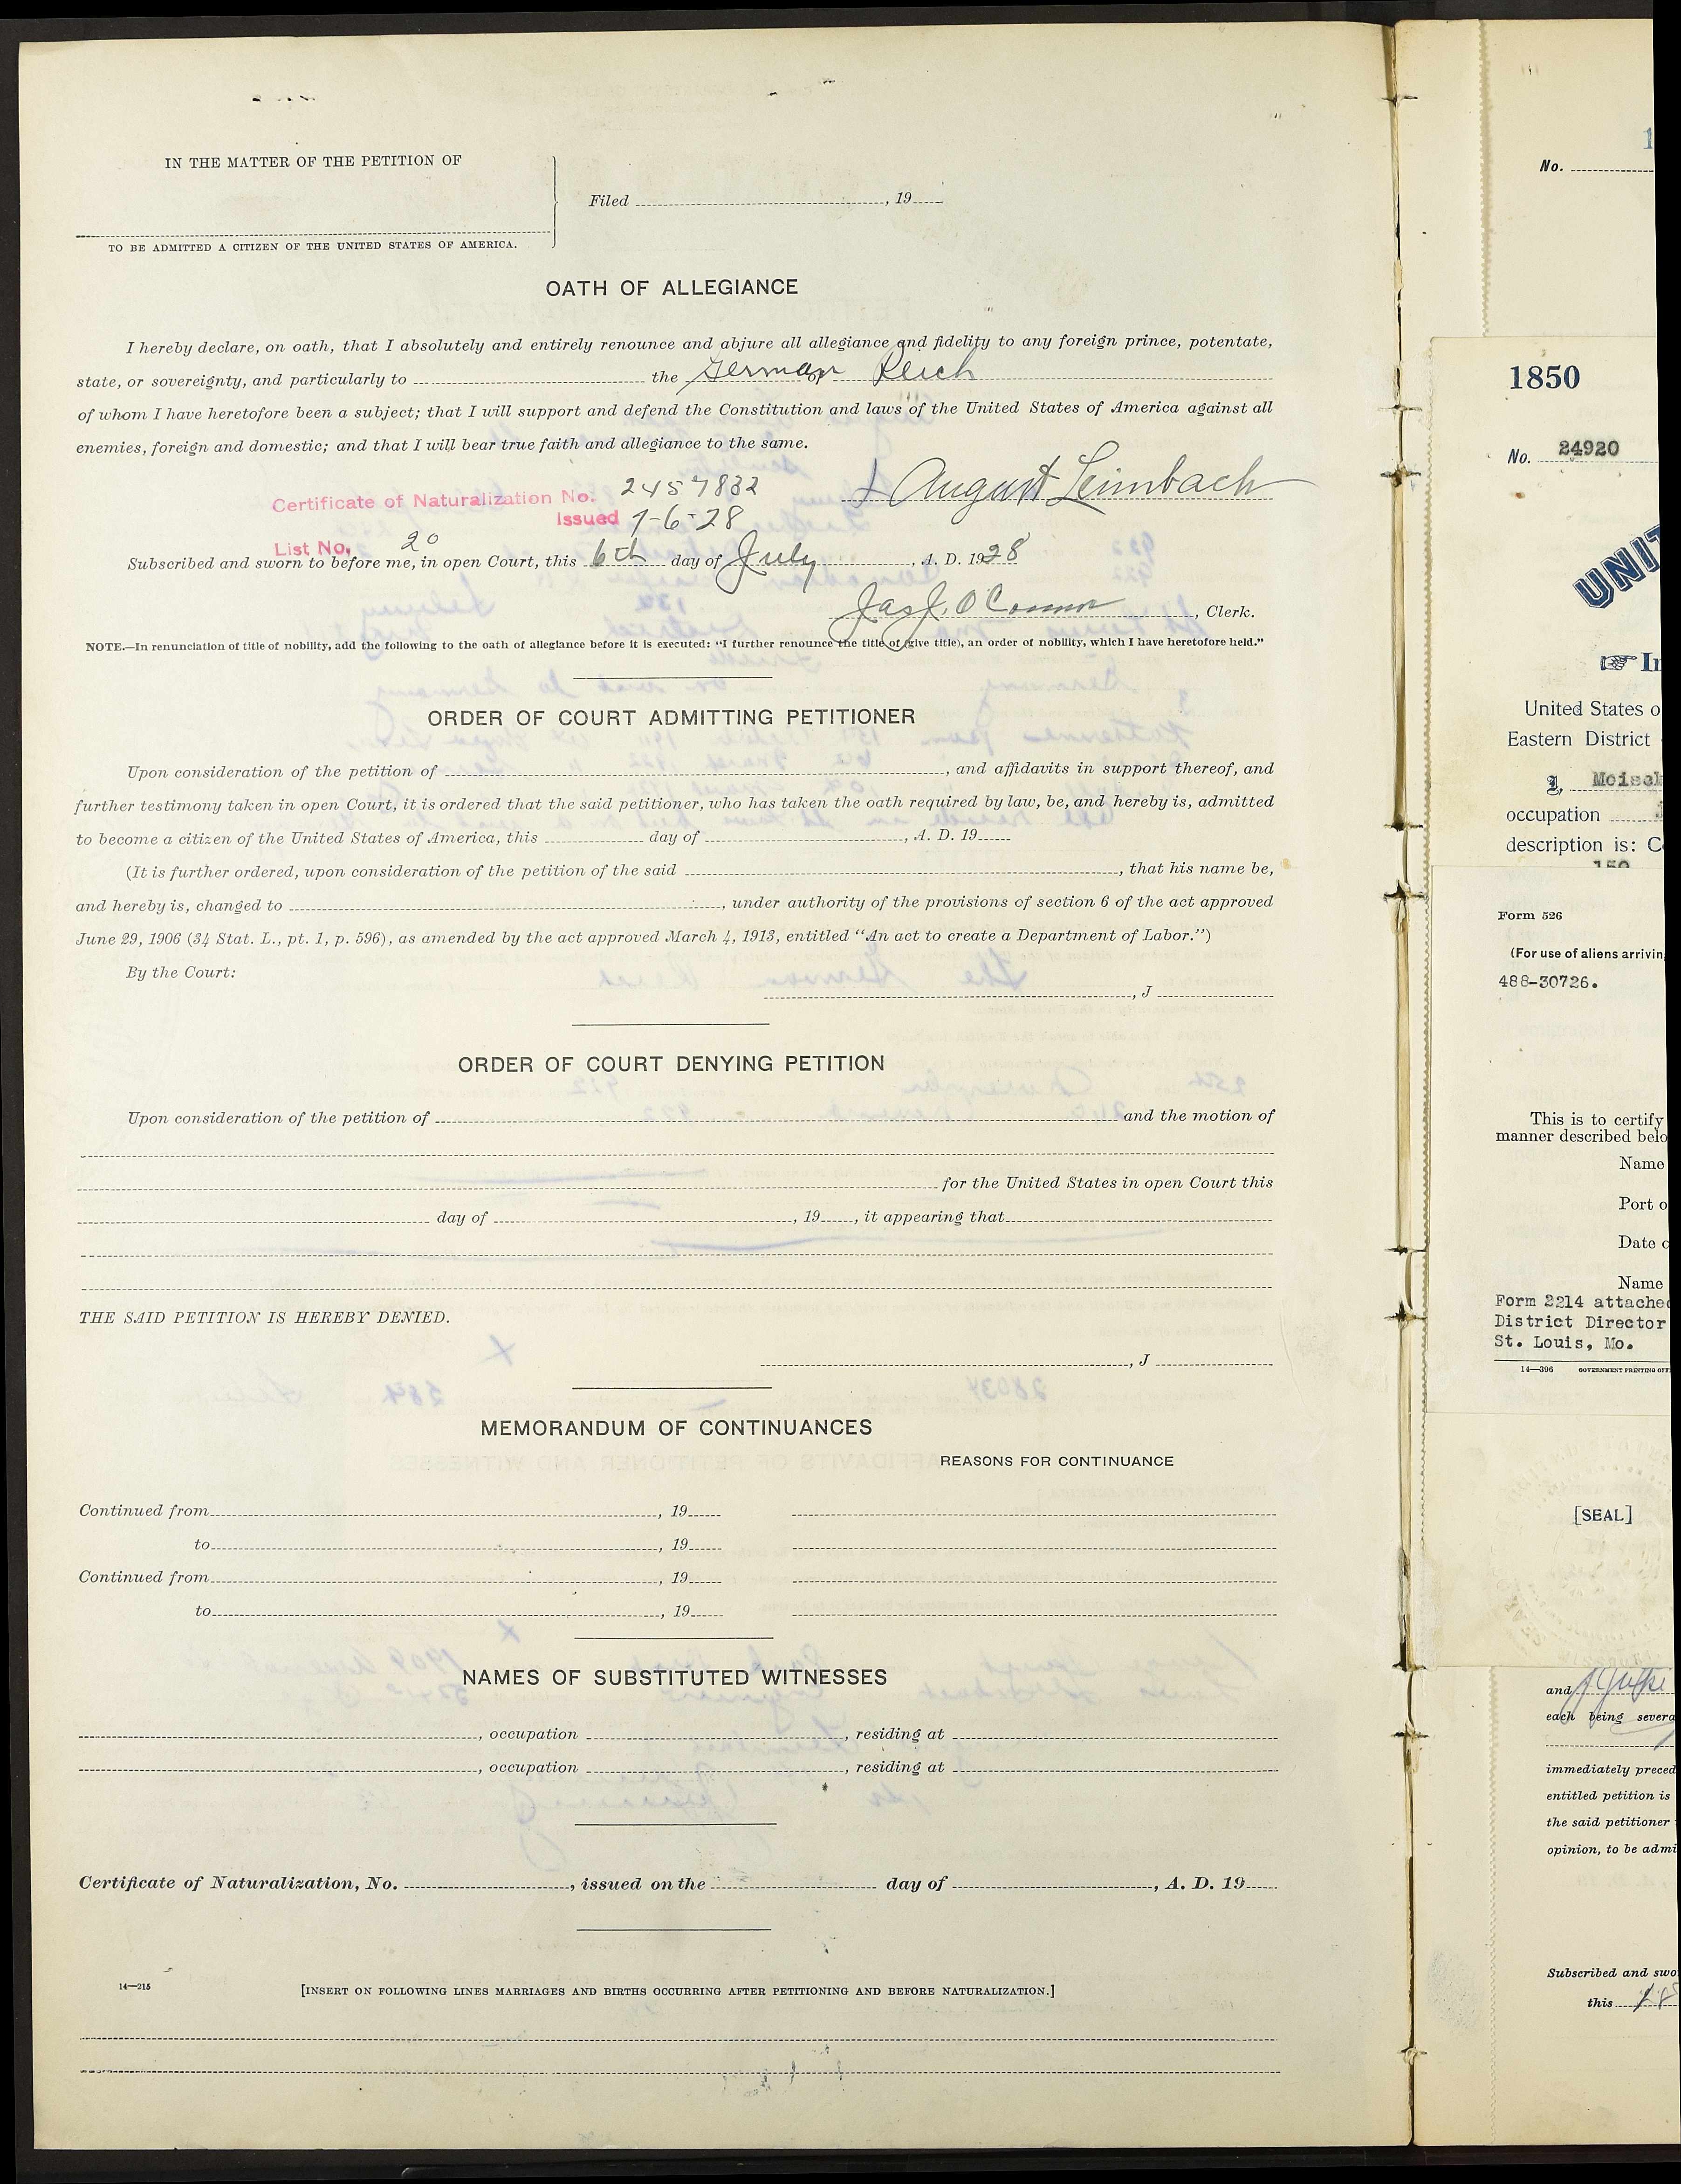 IN THE MATTER OF THE PETITION OF
Filed , 19
TO BE ADMITTED A CITIZEN OF THE UNITED STATES OF AMERICA.
OATH OF ALLEGIANCE
I hereby declare, on oath, that I absolutely and entirely renounce and abjure all allegiance and fidelity to any foreign prince, potentate,
state, or sovereignty, and particularly to the German Reich
of whom I have heretofore been a subject; that I will support and defend the Constitution and laws of the United States of America against all
enemies, foreign and domestic; and that I will bear true faith and allegiance to the same.
August Leimbach
Certificate of Naturalization No. 2457832
Issued 7-6-28
List No. 20
Subscribed and sworn to before me, in open Court, this 6th day of July , A. D. 1928
Jas J. O'Connor , Clerk.
NOTE.—In renunciation of title of nobility, add the following to the oath of allegiance before it is executed: “I further renounce the title of (give title), an order of nobility, which I have heretofore held.”
ORDER OF COURT ADMITTING PETITIONER
Upon consideration of the petition of , and affidavits in support thereof, and
further testimony taken in open Court, it is ordered that the said petitioner, who has taken the oath required by law, be, and hereby is, admitted
to become a citizen of the United States of America, this day of , A. D. 19
(It is further ordered, upon consideration of the petition of the said , that his name be,
and hereby is, changed to , under authority of the provisions of section 6 of the act approved
June 29, 1906 (34 Stat. L., pt. 1, p. 596), as amended by the act approved March 4, 1913, entitled “An act to create a Department of Labor.”)
By the Court:
, J
ORDER OF COURT DENYING PETITION
Upon consideration of the petition of and the motion of
for the United States in open Court this
day of , 19 , it appearing that
THE SAID PETITION IS HEREBY DENIED.
, J
MEMORANDUM OF CONTINUANCES
REASONS FOR CONTINUANCE
Continued from , 19
to , 19
Continued from , 19
to , 19
NAMES OF SUBSTITUTED WITNESSES
, occupation , residing at
, occupation , residing at
Certificate of Naturalization, No. , issued on the day of , A. D. 19
14—215
[INSERT ON FOLLOWING LINES MARRIAGES AND BIRTHS OCCURRING AFTER PETITIONING AND BEFORE NATURALIZATION.]
No.
1850
No. 24920
UNIT
☞ In
United States o
Eastern District
I, Moisch
occupation
description is: C
150
Form 526
(For use of aliens arrivin
488-30726.
This is to certify
manner described belo
Name
Port o
Date o
Name
Form 2214 attached
District Director
St. Louis, Mo.
14—396 GOVERNMENT PRINTING OFF
[SEAL]
and
each being severa
immediately preced
entitled petition is
the said petitioner
opinion, to be admi
Subscribed and swo
this